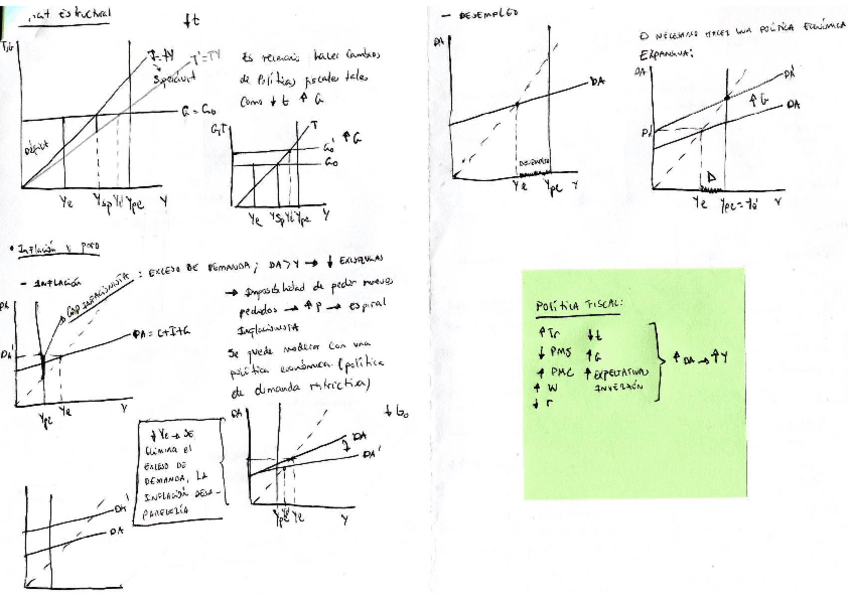 estructural
↓t
T,G
T=TY
T'=TY
Superávit
G = G₀
Déficit
Ye
Ysp
Ype
Y
Es necesario hacer cambios
de políticas fiscales tales
como ↓t ↑G
G,T
T
↑G
G₀'
G₀
Ye
Ysp
Ype
Y
• Inflación y paro
- INFLACIÓN
: EXCESO DE DEMANDA; DA>Y → ↓ EXISTENCIAS
→ Imposibilidad de pedir nuevos
pedidos → ↑P → espiral
INFLACIONISTA
GAP INFLACIONISTA
DA
DA = C+I+G
DA'
Ype
Ye
Y
Se puede moderar con una
política económica (política
de demanda restrictiva)
↓Ye → SE
ELIMINA EL
EXCESO DE
DEMANDA, LA
INFLACIÓN DESA-
PARECERÍA
DA
↓G₀
DA
DA'
Ype
Ye
Y
DA'
DA
- DESEMPLEO
DA
DA
DESEMPLEO
Ye
Ype
Y
ES NECESARIO HACER UNA POLÍTICA ECONÓMICA
EXPANSIVA:
DA
DA'
↑G
DA
Ye
Ype=Ye'
Y
POLÍTICA FISCAL:
↑Tr ↓t
↓PMS ↑G
↑PMC ↑EXPECTATIVAS
↑W INVERSIÓN
↓r
↑DA → ↑Y